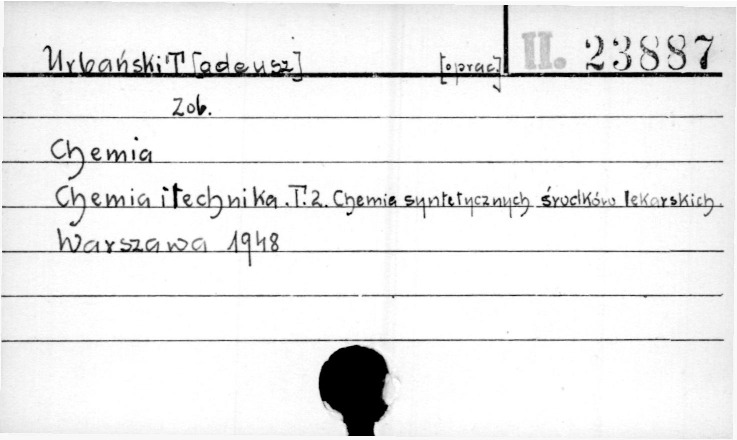 Urbański T[adeusz] [oprac] II. 23887
Zob.
Chemia
Chemia i technika. T. 2. Chemia syntetycznych środków lekarskich.
Warszawa 1948